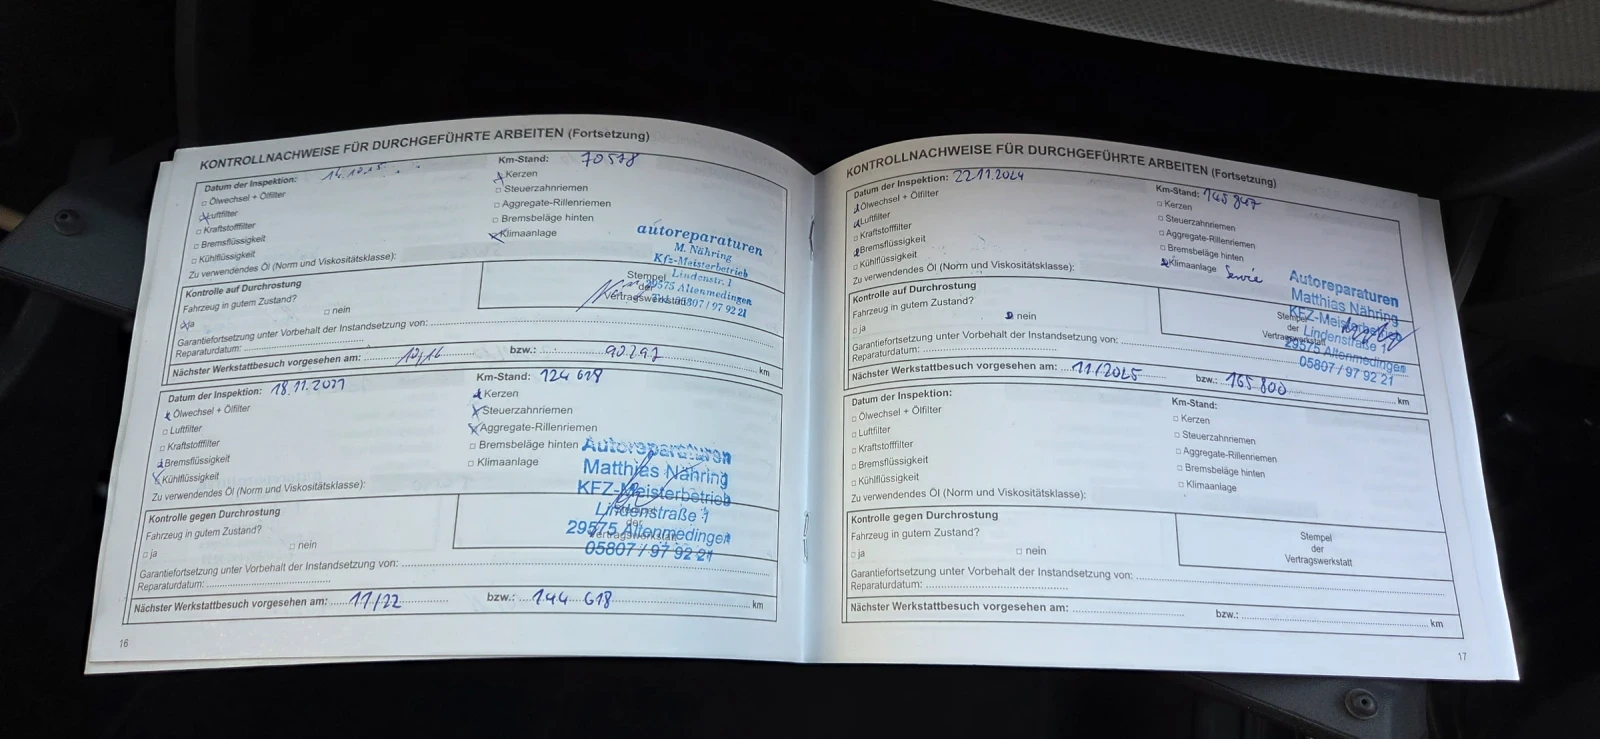 KONTROLLNACHWEISE FÜR DURCHGEFÜHRTE ARBEITEN (Fortsetzung)
Datum der Inspektion: Km-Stand: 70578
Ölwechsel + Ölfilter Kerzen
Luftfilter Steuerzahnriemen
Kraftstofffilter Aggregate-Rillenriemen
Bremsflüssigkeit Bremsbeläge hinten
Kühlflüssigkeit Klimaanlage
Zu verwendendes Öl (Norm und Viskositätsklasse):
autoreparaturen
M. Nähring
Kfz-Meisterbetrieb
Lindenstr. 1
29575 Altenmedingen
05807 / 97 92 21
Kontrolle auf Durchrostung
Fahrzeug in gutem Zustand?
ja nein
Stempel
der
Vertragswerkstatt
Garantiefortsetzung unter Vorbehalt der Instandsetzung von:
Reparaturdatum:
Nächster Werkstattbesuch vorgesehen am: 10/16 bzw.: km
Datum der Inspektion: 18.11.2021 Km-Stand: 124 618
Ölwechsel + Ölfilter Kerzen
Luftfilter Steuerzahnriemen
Kraftstofffilter Aggregate-Rillenriemen
Bremsflüssigkeit Bremsbeläge hinten
Kühlflüssigkeit Klimaanlage
Zu verwendendes Öl (Norm und Viskositätsklasse):
Autoreparaturen
Matthias Nähring
KFZ-Meisterbetrieb
Lindenstraße 1
29575 Altenmedingen
05807 / 97 92 21
Kontrolle gegen Durchrostung
Fahrzeug in gutem Zustand?
ja nein
der
Vertragswerkstatt
Garantiefortsetzung unter Vorbehalt der Instandsetzung von:
Reparaturdatum:
Nächster Werkstattbesuch vorgesehen am: 11/22 bzw.: 144 618 km
16
KONTROLLNACHWEISE FÜR DURCHGEFÜHRTE ARBEITEN (Fortsetzung)
Datum der Inspektion: 22.11.2024 Km-Stand: 145 847
Ölwechsel + Ölfilter Kerzen
Luftfilter Steuerzahnriemen
Kraftstofffilter Aggregate-Rillenriemen
Bremsflüssigkeit Bremsbeläge hinten
Kühlflüssigkeit Klimaanlage Service
Zu verwendendes Öl (Norm und Viskositätsklasse):
Autoreparaturen
Matthias Nähring
KFZ-Meisterbetrieb
Lindenstraße 1
29575 Altenmedingen
05807 / 97 92 21
Kontrolle auf Durchrostung
Fahrzeug in gutem Zustand?
ja nein
Stempel
der
Vertragswerkstatt
Garantiefortsetzung unter Vorbehalt der Instandsetzung von:
Reparaturdatum:
Nächster Werkstattbesuch vorgesehen am: 11/2025 bzw.: 165 800 km
Datum der Inspektion: Km-Stand:
Ölwechsel + Ölfilter Kerzen
Luftfilter Steuerzahnriemen
Kraftstofffilter Aggregate-Rillenriemen
Bremsflüssigkeit Bremsbeläge hinten
Kühlflüssigkeit Klimaanlage
Zu verwendendes Öl (Norm und Viskositätsklasse):
Kontrolle gegen Durchrostung
Fahrzeug in gutem Zustand?
ja nein
Stempel
der
Vertragswerkstatt
Garantiefortsetzung unter Vorbehalt der Instandsetzung von:
Reparaturdatum:
Nächster Werkstattbesuch vorgesehen am: bzw.: km
17